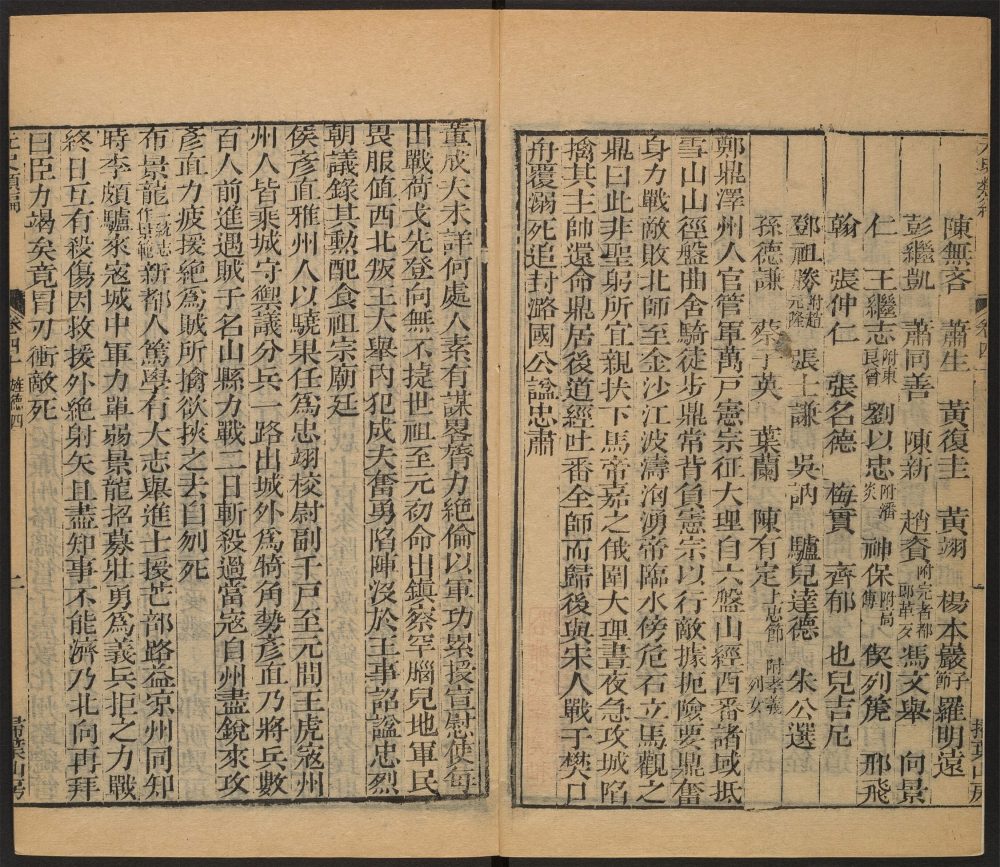 陳無吝 蕭生 黃復圭 黃翊 楊本巖子節 羅明遠
彭繼凱 蕭同善 陳新 趙資附完者都 馮文舉 向景
仁 王繼志附東良曾 劉以忠附潘炎 神保附局傳 偰列箎 邢飛
翰 張仲仁 張名德 梅實 齊郁 也兒吉尼
鄧祖勝附趙元隆 張士謙 吳訥 驢兒達德 朱公選
孫德謙 蔡子英 葉蘭 陳有定 附孝義列女
鄭鼎澤州人官管軍萬戸憲宗征大理自六盤山經西番諸域抵
雪山山徑盤曲舍騎徒步鼎常背負憲宗以行敵據扼險要鼎奮
身力戰敵敗北師至金沙江波濤洶湧帝臨水傍危石立馬觀之
鼎曰此非聖躬所宜親扶下馬帝嘉之俄圍大理晝夜急攻城陷
擒其主帥還命鼎居後道經吐番全師而歸後與宋人戰于樊口
舟覆溺死追封潞國公諡忠肅
董成大未詳何處人素有謀畧膂力絶倫以軍功累授宣慰使每
出戰荷戈先登向無不㨗世祖至元初命出鎮察罕腦兒地軍民
畏服值西北叛王大舉內犯成夫奮勇陷陣沒於王事詔諡忠烈
朝議錄其勲配食祖宗廟廷
侯彥直雅州人以驍果任爲忠翊校尉副千戸至元間王虎寇州
州人皆乘城守禦議分兵一路出城外爲犄角勢彥直乃將兵數
百人前進遇賊于名山縣力戰二日斬殺過當寇自州盡銳來攻
彥直力疲援絶爲賊所擒欲挾之去自刎死
布景龍一統志作景範新都人篤學有大志舉進士授芒部路益凉州同知
時李頗驢來寇城中軍力單弱景龍招募壯勇爲義兵拒之力戰
終日互有殺傷因救援外絶射矢且盡知事不能濟乃北向再拜
曰臣力竭矣竟冒刃衝敵死
元史類編 卷四 二 掃葉山房